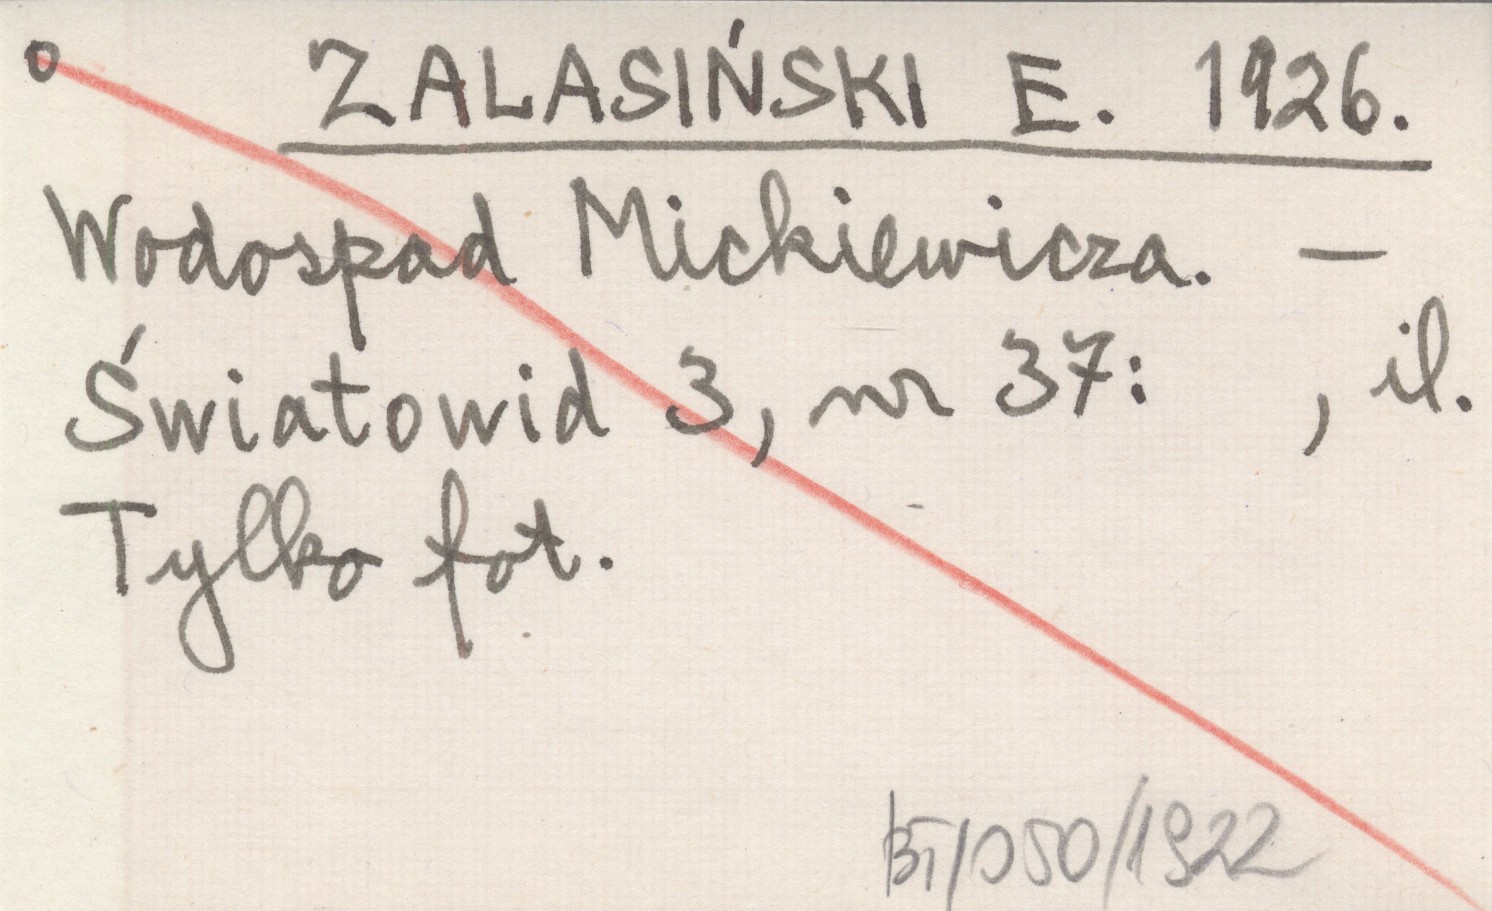 o ZALASIŃSKI E. 1926.
Wodospad Mickiewicza. —
Światowid 3, nr 37: , il.
Tylko fot.
/050/1922